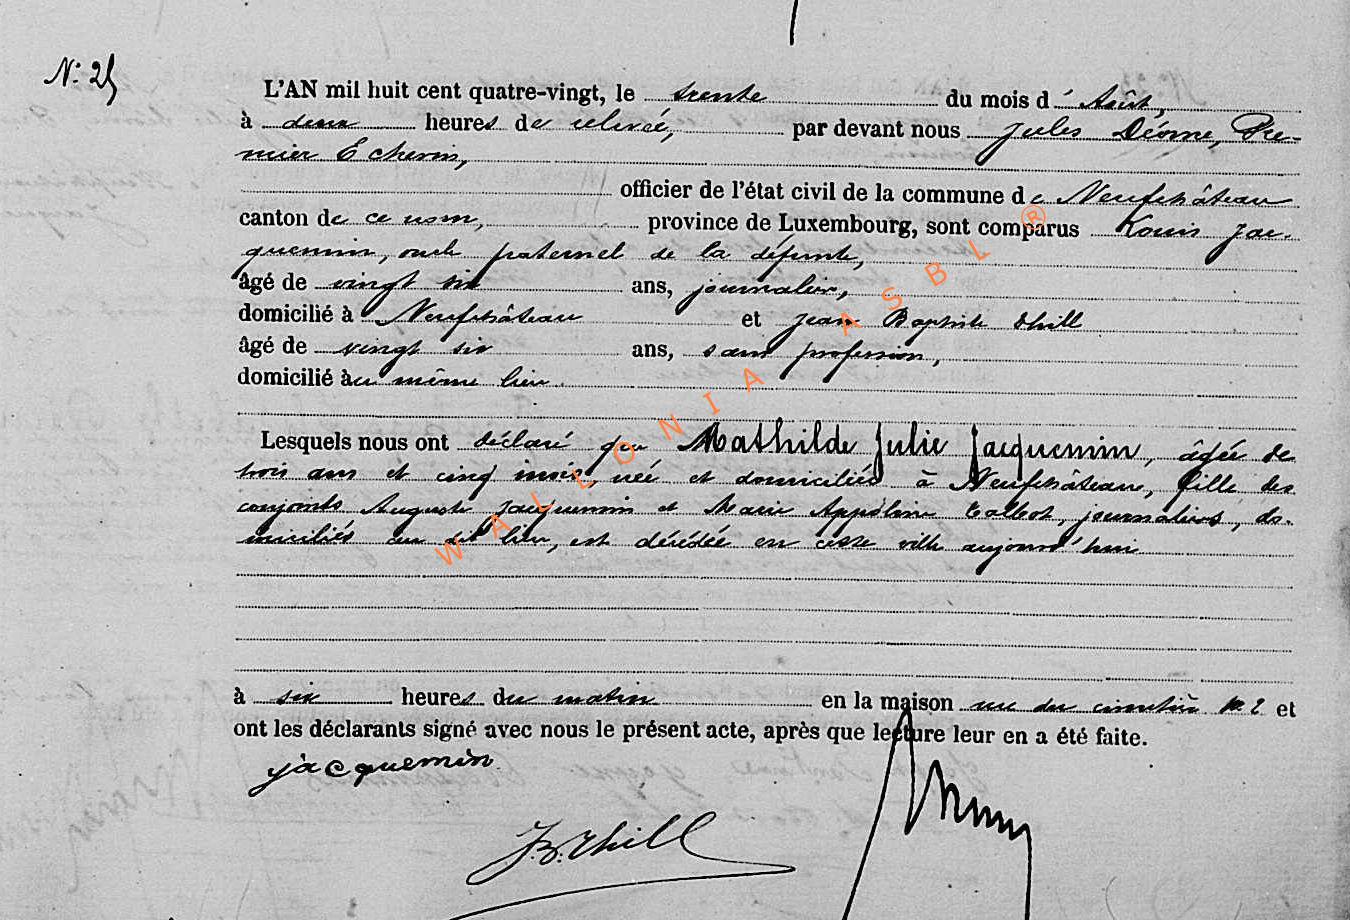 N° 25
L'AN mil huit cent quatre-vingt, le trente du mois d' Août,
à deux heures de relevée, par devant nous Jules Déome, Pre-
mier Echevin,
officier de l'état civil de la commune de Neufchâteau
canton de ce nom, province de Luxembourg, sont comparus Louis Jac-
quemin, oncle paternel de la défunte,
âgé de vingt six ans, journalier,
domicilié à Neufchâteau et Jean Baptiste Thill
âgé de vingt six ans, sans profession,
domicilié au même lieu.
Lesquels nous ont déclaré que Mathilde Julie Jacquemin, âgée de
trois ans et cinq mois, née et domiciliée à Neufchâteau, fille des
conjoints Auguste Jacquemin et Marie Appoline Talbot, journaliers, do-
miciliés au dit lieu, est décédée en cette ville aujourd'hui
à six heures du matin en la maison rue du cimetière N° 2 et
ont les déclarants signé avec nous le présent acte, après que lecture leur en a été faite.
jacquemin
J.B. Thill
WALLONIA ASBL ®